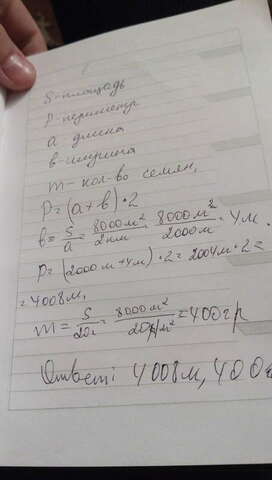 S-площадь
P-периметр
a длина
в-ширина
m-кол-во семян,
P=(a+в)·2
в=S/a=8000м²/2км=8000м²/2000м=4м.
P=(2000м+4м)·2=2004м·2=
=4008м,
m=S/20г=8000м²/20г/м²=400гр
Ответ: 4008м, 400г